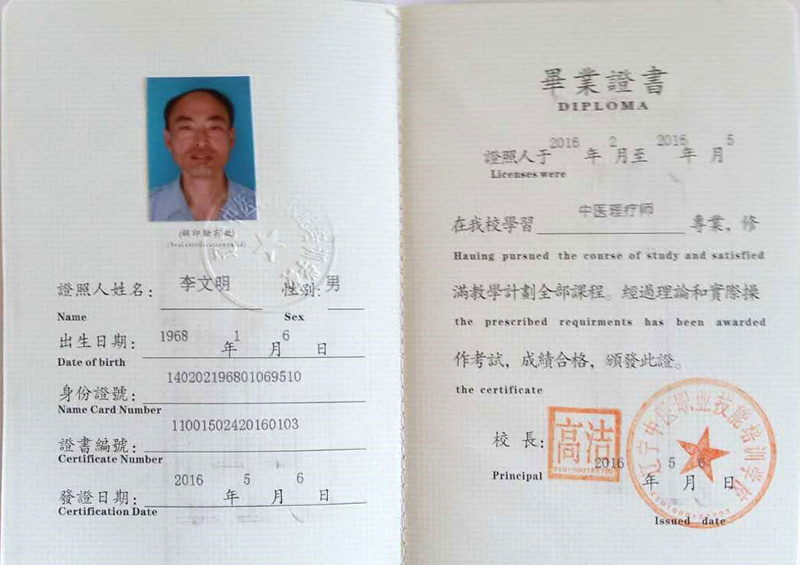 (鋼印驗有效)
證照人姓名：李文明 性别：男
Name Sex
出生日期：1968 年 1 月 6 日
Date of birth
身份證號：140202196801069510
Name Card Number
證書編號：11001502420160103
Certificate Number
發證日期：2016 年 5 月 6 日
Certification Date
畢業證書
DIPLOMA
證照人于 2016 年 2 月至 2016 年 5 月
Licenses were
在我校學習 中医理疗师 專業，修
Hauing pursued the course of study and satisfied
滿教學計劃全部課程。經過理論和實際操
the prescribed requirments has been awarded
作考試，成績合格，頒發此證。
the certificate
校長：高洁
Principal
2016 年 5 月 6 日
Issued date
辽宁中医职业技能培训学校